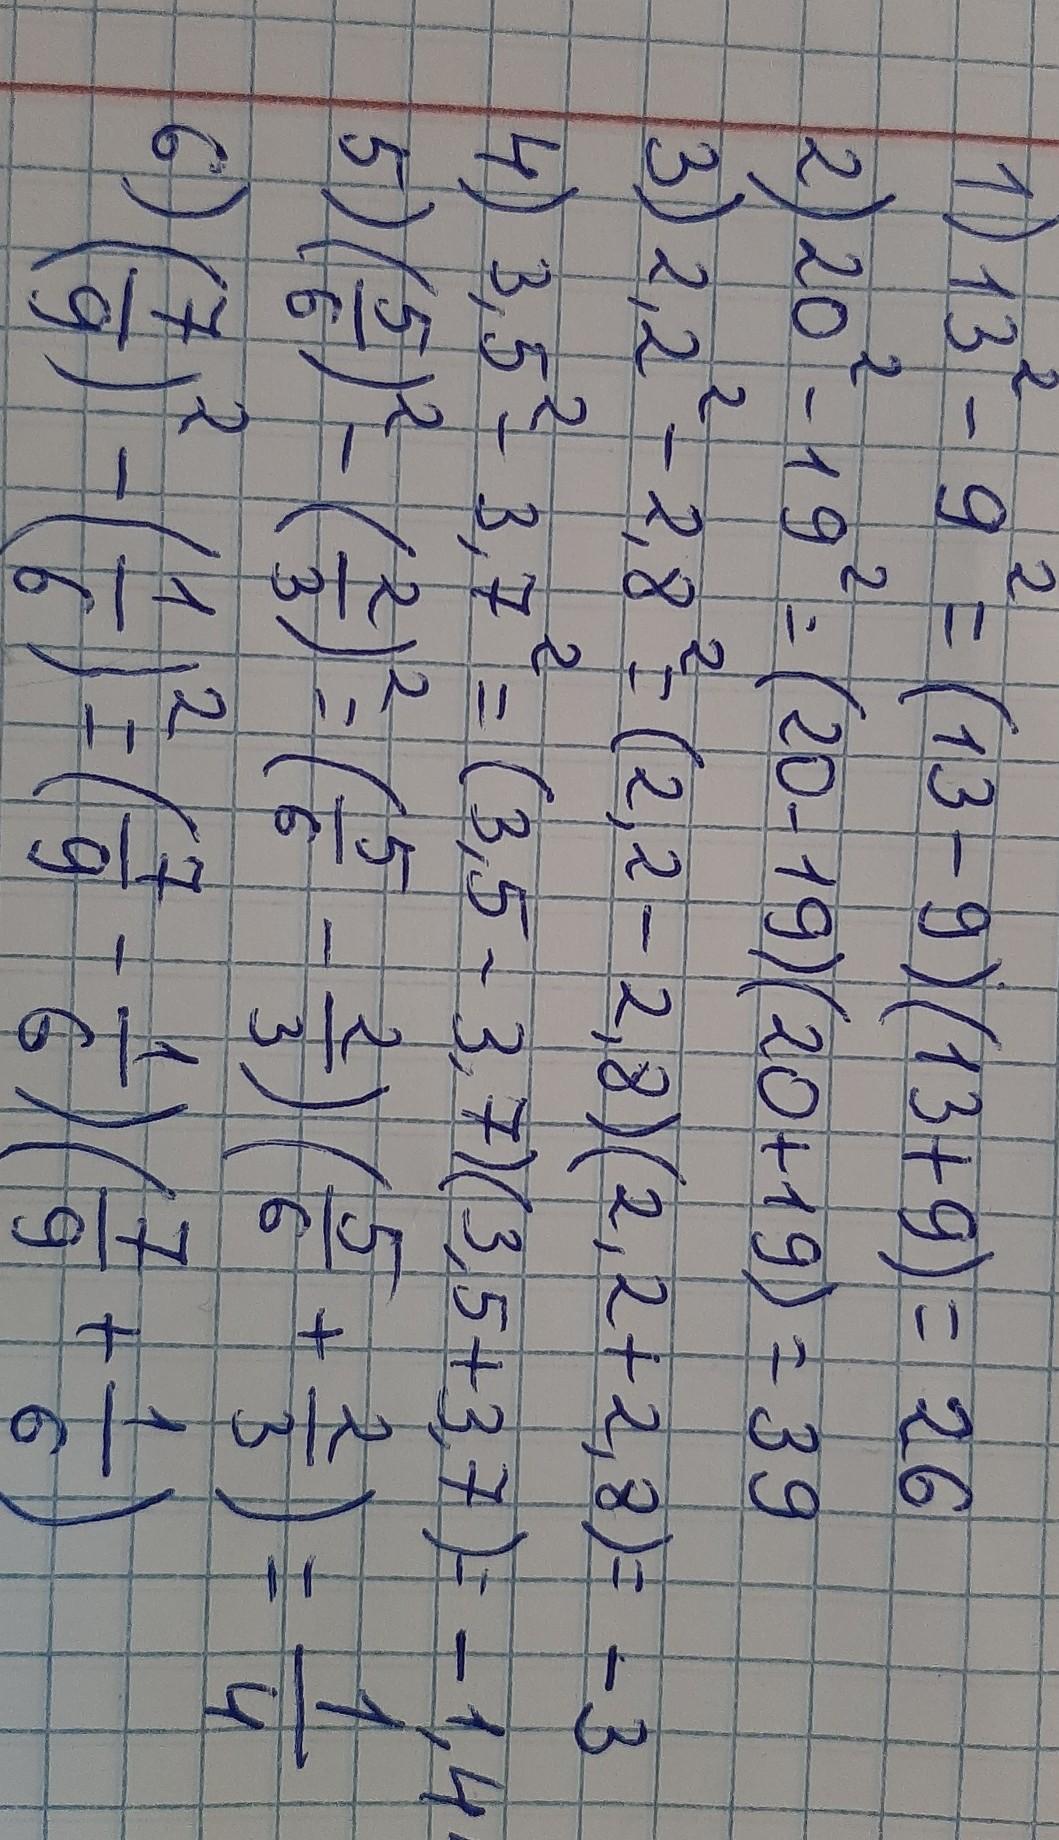 1) 13² - 9² = (13 - 9)(13 + 9) = 26
2) 20² - 19² = (20 - 19)(20 + 19) = 39
3) 2,2² - 2,8² = (2,2 - 2,8)(2,2 + 2,8) = -3
4) 3,5² - 3,7² = (3,5 - 3,7)(3,5 + 3,7) = -1,4
5) (5/6)² - (2/3)² = (5/6 - 2/3)(5/6 + 2/3) = 1/4
6) (7/9)² - (1/6)² = (7/9 - 1/6)(7/9 + 1/6)